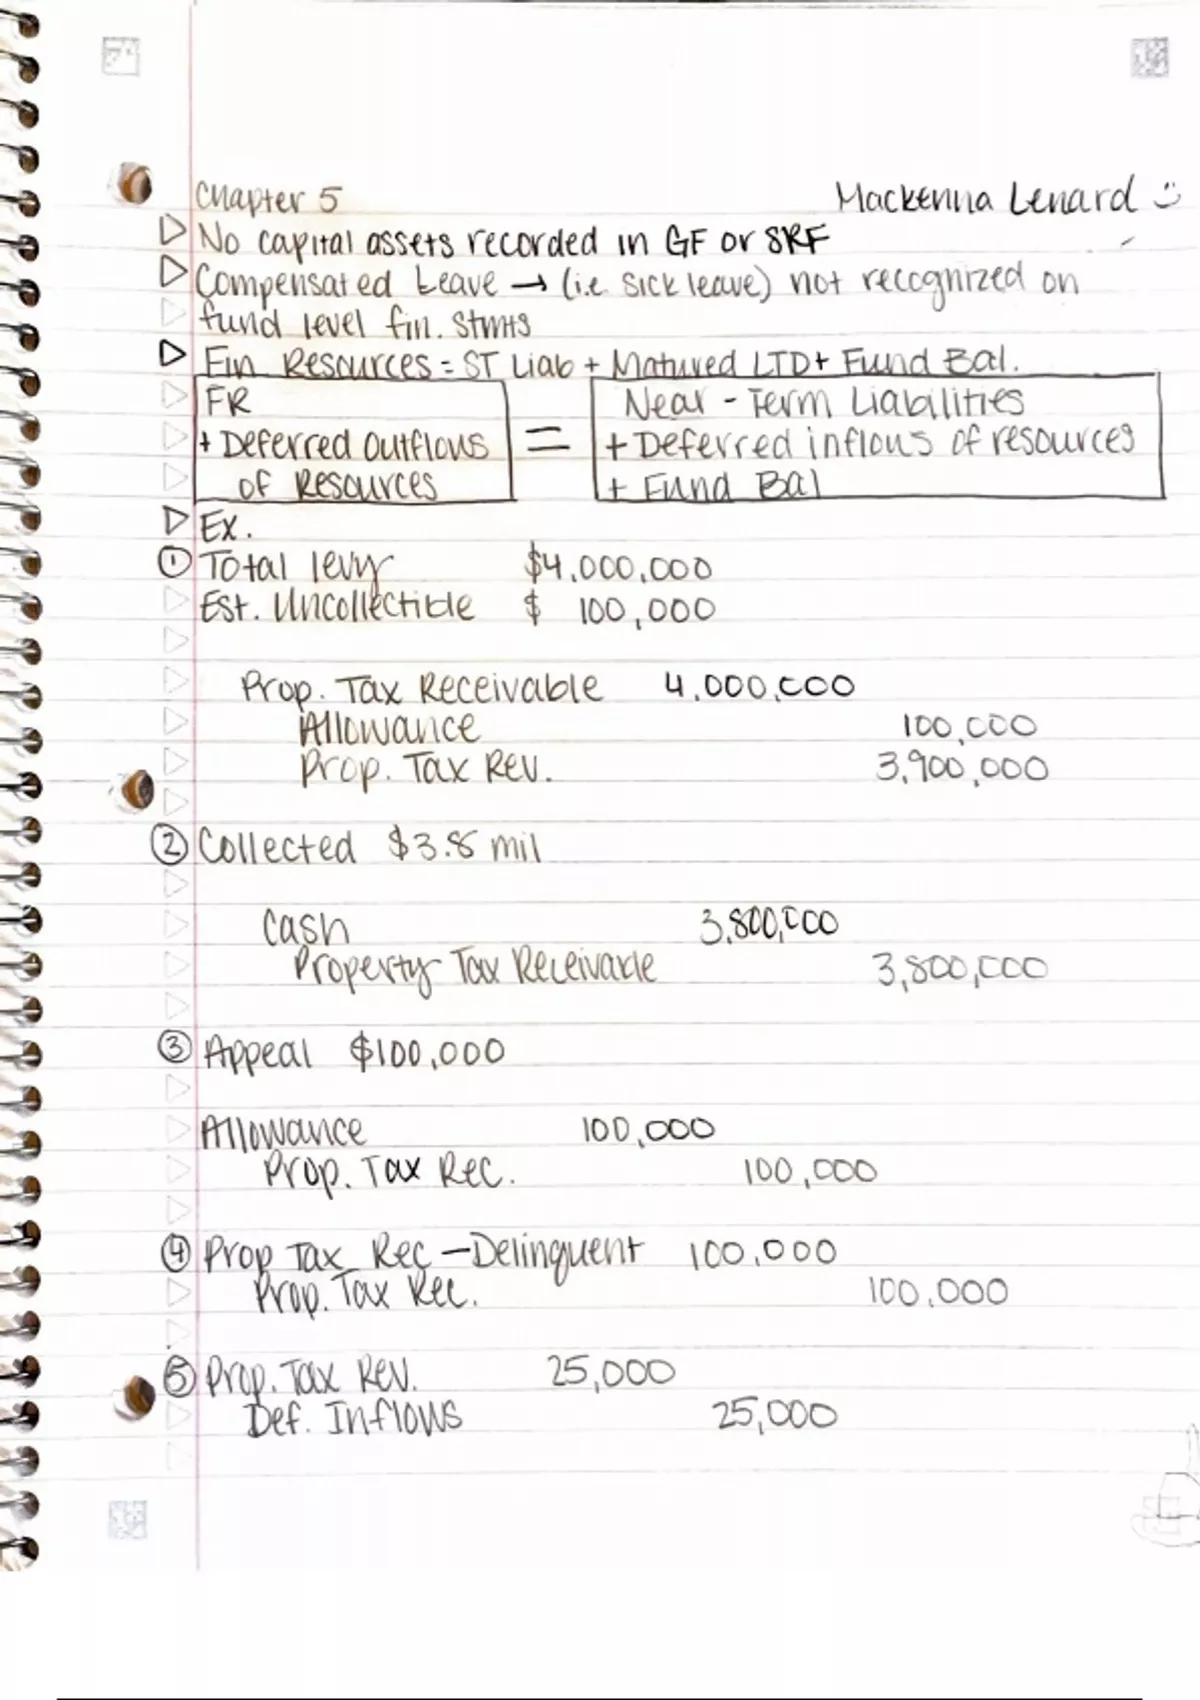 Chapter 5 Mackenna Lenard
No capital assets recorded in GF or SRF
Compensated Leave → (i.e. sick leave) not recognized on
fund level fin. stmts
Fin Resources = ST Liab + Matured LTD + Fund Bal.
FR
+ Deferred Outflows
of Resources
=
Near-Term Liabilities
+ Deferred inflows of resources
+ Fund Bal
Ex.
① Total levy $4,000,000
Est. Uncollectible $ 100,000
Prop. Tax Receivable 4,000,000
Allowance 100,000
Prop. Tax Rev. 3,900,000
② Collected $3.8 mil
Cash 3,800,000
Property Tax Receivable 3,800,000
③ Appeal $100,000
Allowance 100,000
Prop. Tax Rec. 100,000
④ Prop Tax Rec - Delinquent 100,000
Prop. Tax Rec. 100,000
⑤ Prop. Tax Rev. 25,000
Def. Inflows 25,000